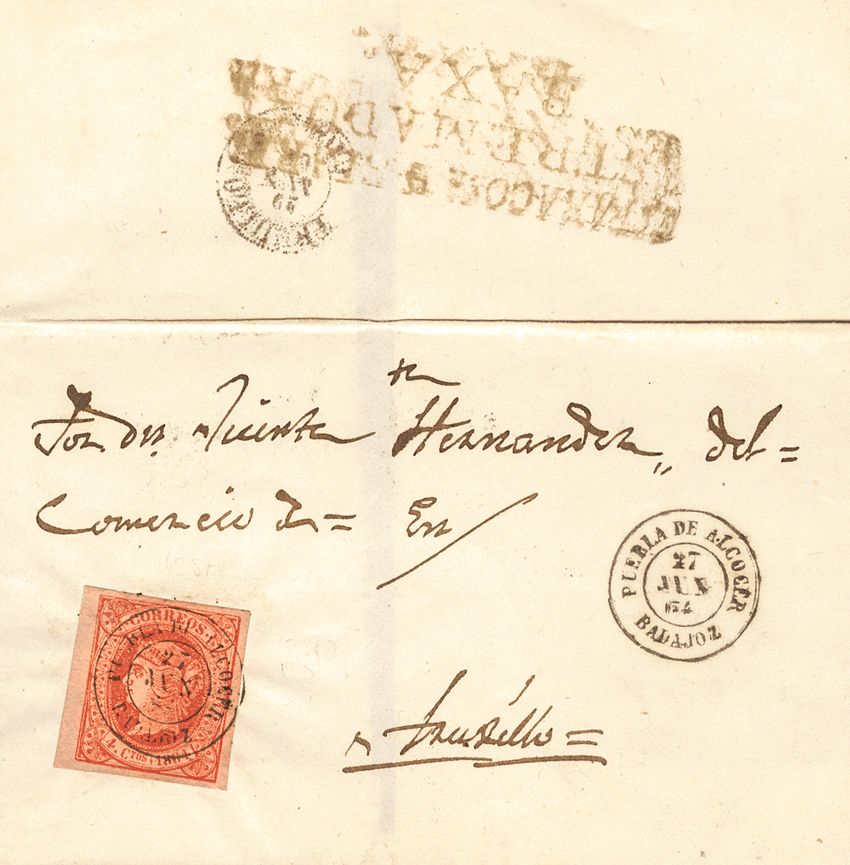 ESTREMADURA
BAXA.
29
JUN
Sor. Dn. Vicente Hernandez,, del=
Comercio de= En
PUEBLA DE ALCOCER
27
JUN
64
BADAJOZ
CORREOS
ALCOCER
27
JUN
4 CTOS 1864
Truxillo=